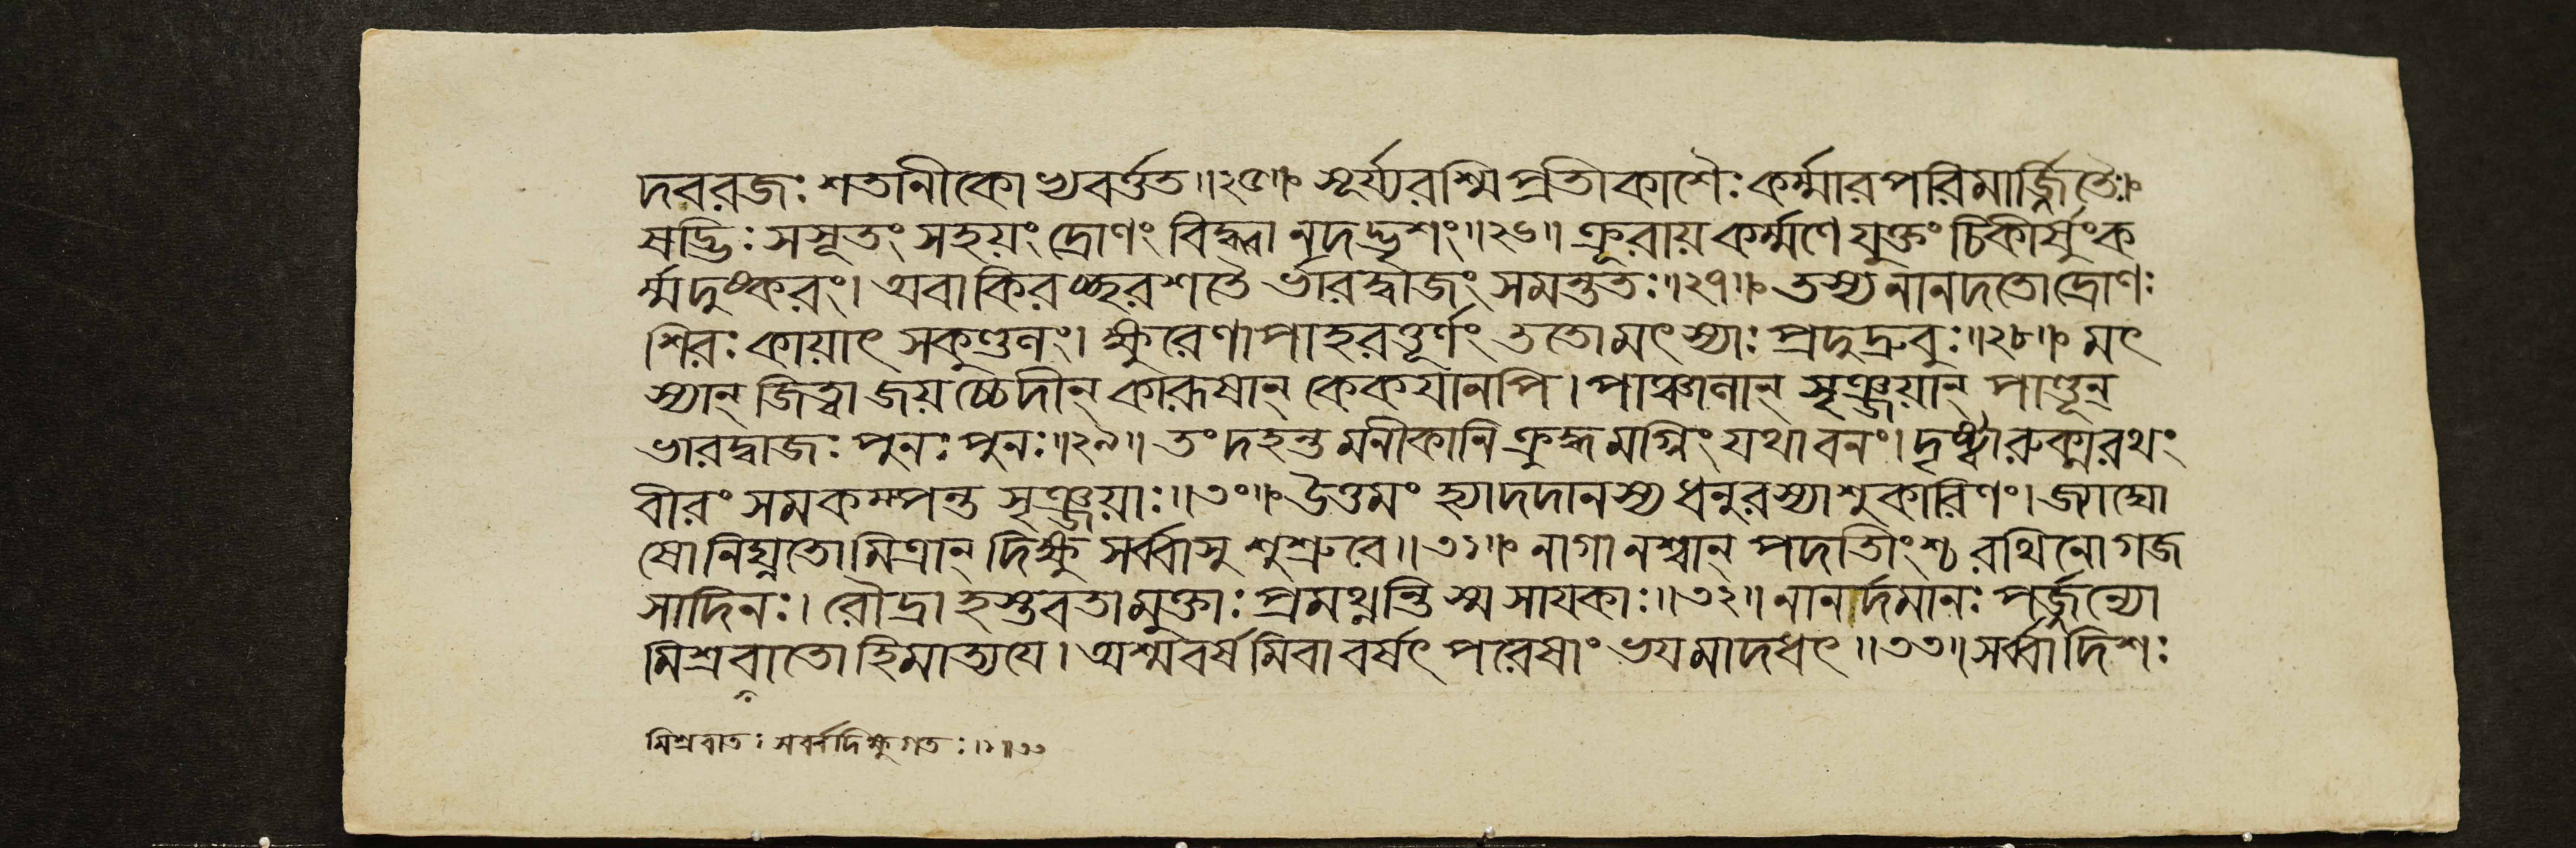 দবরজঃ শতানীকোভ্যবর্ত্তত॥২৫॥ সূর্য্যরশ্মিপ্রতীকাশৈঃ কর্ম্মারপরিমার্জ্জিতৈঃ।
ষড্ভিঃ সসূতং সহয়ং দ্রোণং বিদ্ধ্বা নদদ্ভৃশং॥২৬॥ ক্রূরায় কর্ম্মণে যুক্তং চিকীর্ষুং ক
র্ম্ম দুষ্করং। অবাকিরচ্ছরশতৈ র্ভারদ্বাজং সমন্ততঃ॥২৭॥ তস্য নানদতো দ্রোণঃ
শিরঃ কায়াৎ সকুণ্ডলং। ক্ষুরেণাপাহরত্তূর্ণং ততো মৎস্যাঃ প্রদুদ্রুবুঃ॥২৮॥ মৎ
স্যান্ জিত্বা জয়চ্চেদীন্ কারূষান্ কেকয়ানপি। পাঞ্চালান্ সৃঞ্জয়ান্ পাণ্ডূন্
ভারদ্বাজঃ পুনঃ পুনঃ॥২৯॥ তং দহন্তমনীকানি ক্রুদ্ধমগ্নিং যথা বনং। দৃষ্ট্বা রুক্মরথং
বীরং সমকম্পন্ত সৃঞ্জয়াঃ॥৩০॥ উত্তমং হ্যাদদানস্য ধনুরস্যাশুকারিণং। জ্যাঘো
ষো নিঘ্নতো মিত্রান্ দিক্ষু সর্ব্বাসু শুশ্রুবে॥৩১॥ নাগানশ্বান্ পদাতিংশ্চ রথিনো গজ
সাদিনঃ। রৌদ্রা হস্তবতা মুক্তাঃ প্রমথ্নন্তি স্ম সায়কাঃ॥৩২॥ নানার্দমানঃ পর্জ্জন্যো
মিশ্রবাতো হিমাত্যয়ে। অশ্মবর্ষমিবাবর্ষৎ পরেষাং ভয়মাদধৎ॥৩৩॥ সর্ব্বা দিশঃ
মিশ্রবাতঃ সর্ব্বদিক্ষু গতঃ।১॥৩৩